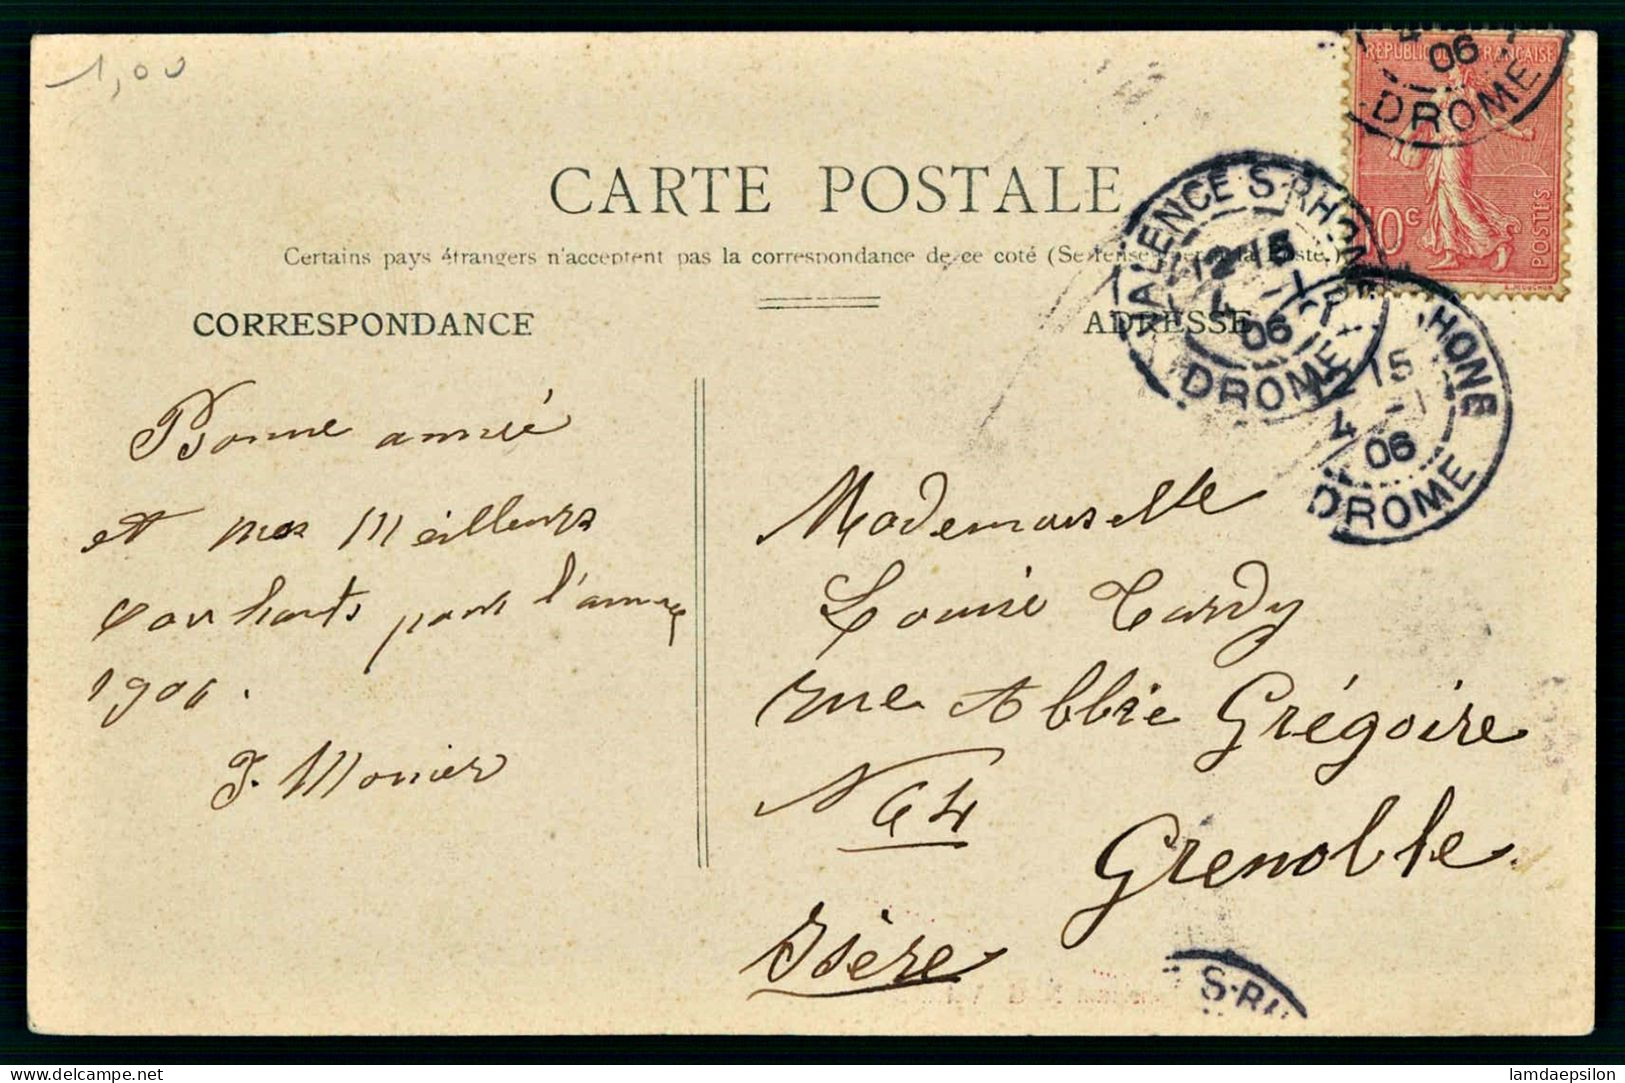 1,00
REPUBLIQUE FRANÇAISE
10c
POSTES
4
06
DROME
CARTE POSTALE
Certains pays étrangers n'acceptent pas la correspondance de ce coté (Se renseigner à la Poste.)
VALENCE-S-RHONE
12-15
4 -1
06
DROME
CORRESPONDANCE
ADRESSE
HONE
15
4 -1
06
DROME
Bonne année
et mes Meilleurs
souhaits pour l'année
1906.
J. Monier
Mademoiselle
Louise Tardy
rue Abbée Grégoire
N 64
Grenoble.
Isère
S-RH
lamdaepsilon
delcampe.net